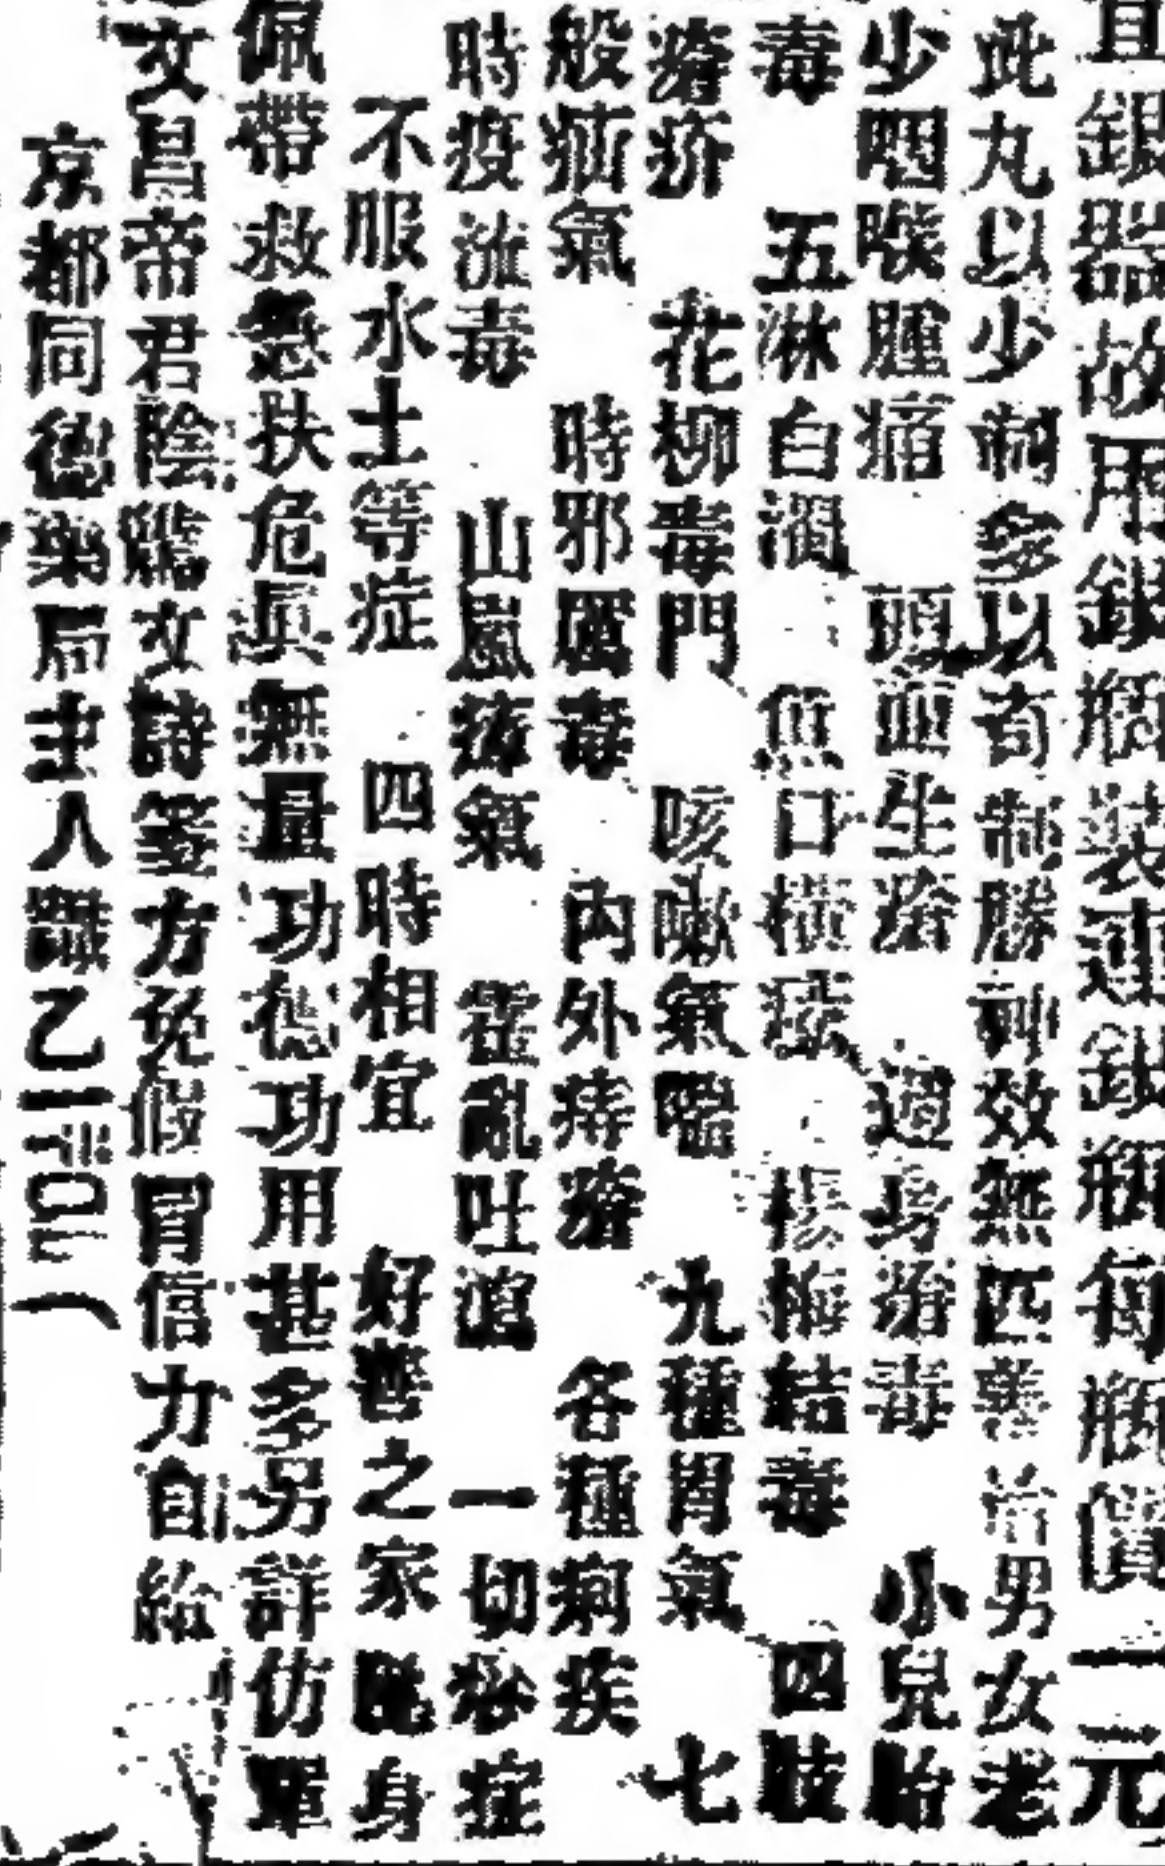 且銀器故用銀瓶裝連銀瓶每瓶價一元
此丸以少制多以奇制勝神效無匹善治男女老
少咽喉腫痛 頭面生瘡 週身瘡毒 小兒胎
毒 五淋白濁 魚口橫痃 楊梅結毒 四肢
瘡疥 花柳毒門 咳嗽氣喘 九種胃氣 七
般疝氣 時邪風毒 內外痔瘡 各種痢疾
時疫流毒 山嵐瘴氣 霍亂吐瀉 一切痧症
不服水土等症 四時相宜 好善之家 隨身
佩帶救急扶危真無量功德功用甚多另詳仿單
文昌帝君陰騭文詩箋方免假冒信力自給
京都同德藥局主人謹